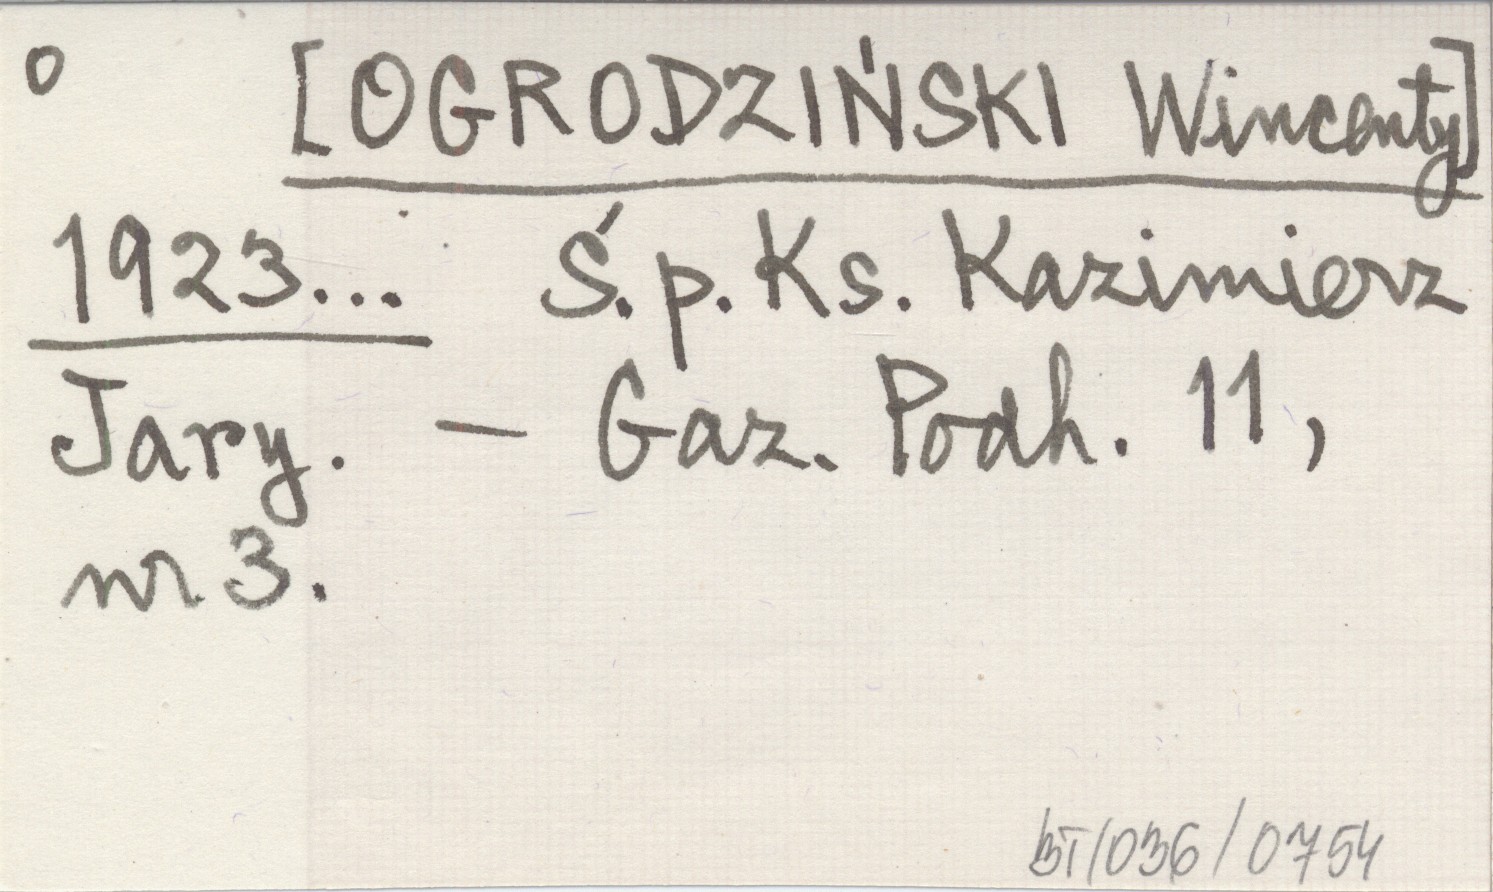 o [OGRODZIŃSKI Wincenty]
1923... Ś.p. Ks. Kazimierz
Jary. — Gaz. Podh. 11,
nr 3.
BT/036/0754